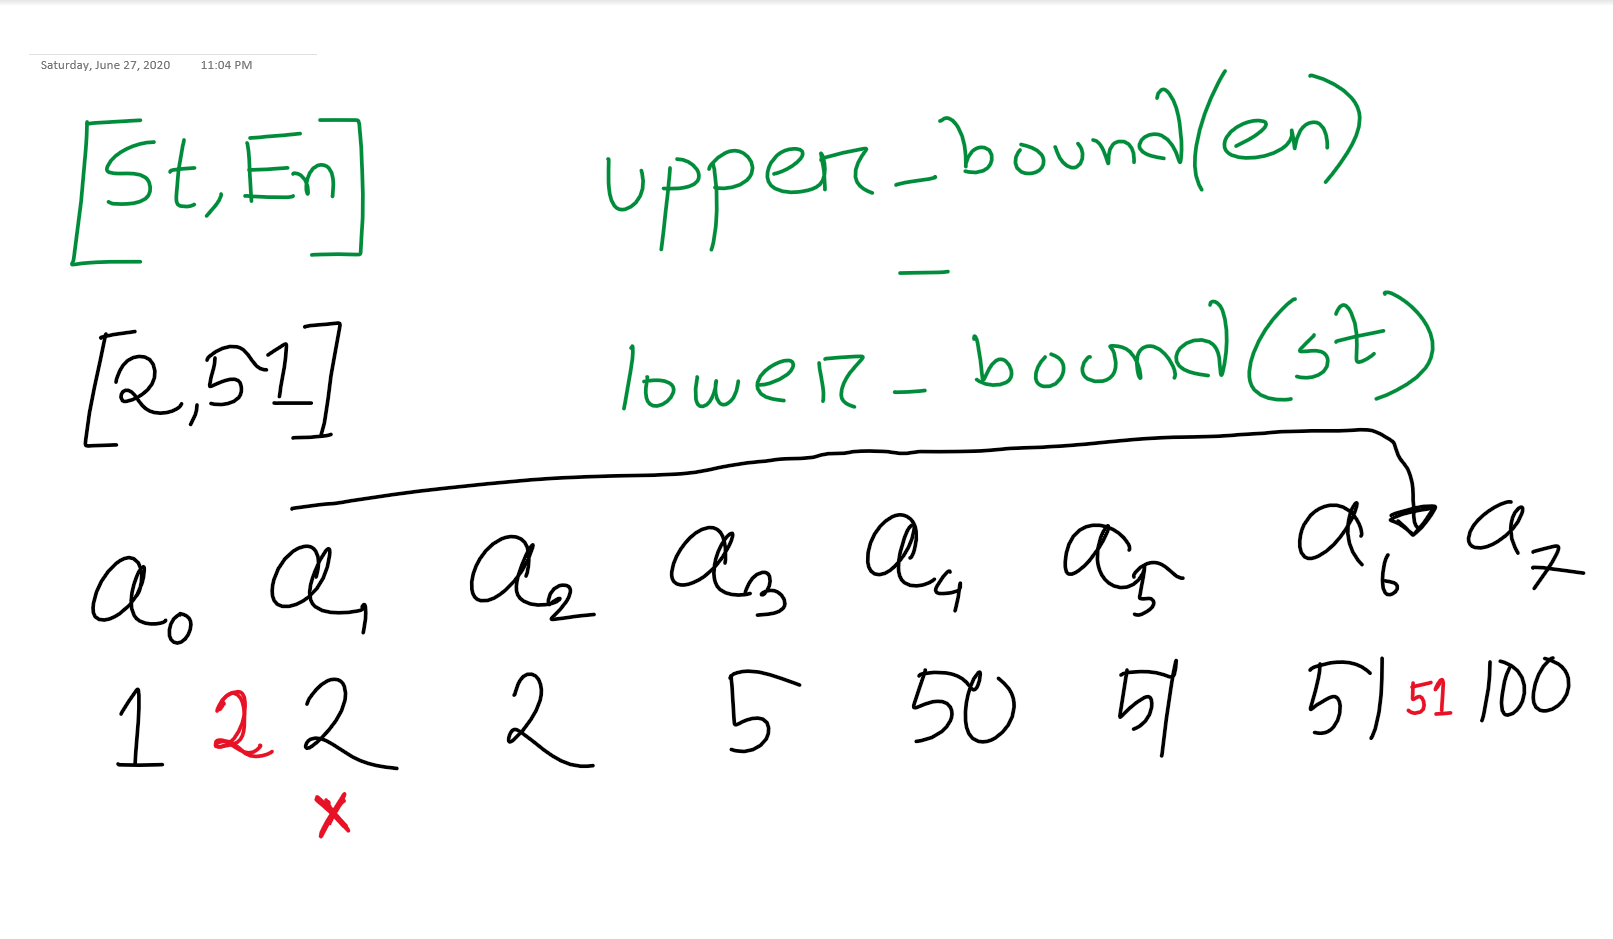 Saturday, June 27, 2020 11:04 PM
[St, En] upper_bound(en)
-
[2, 51] lower_bound(st)
a0 a1 a2 a3 a4 a5 a6 a7
1 2 2 2 5 50 51 51 51 100
x